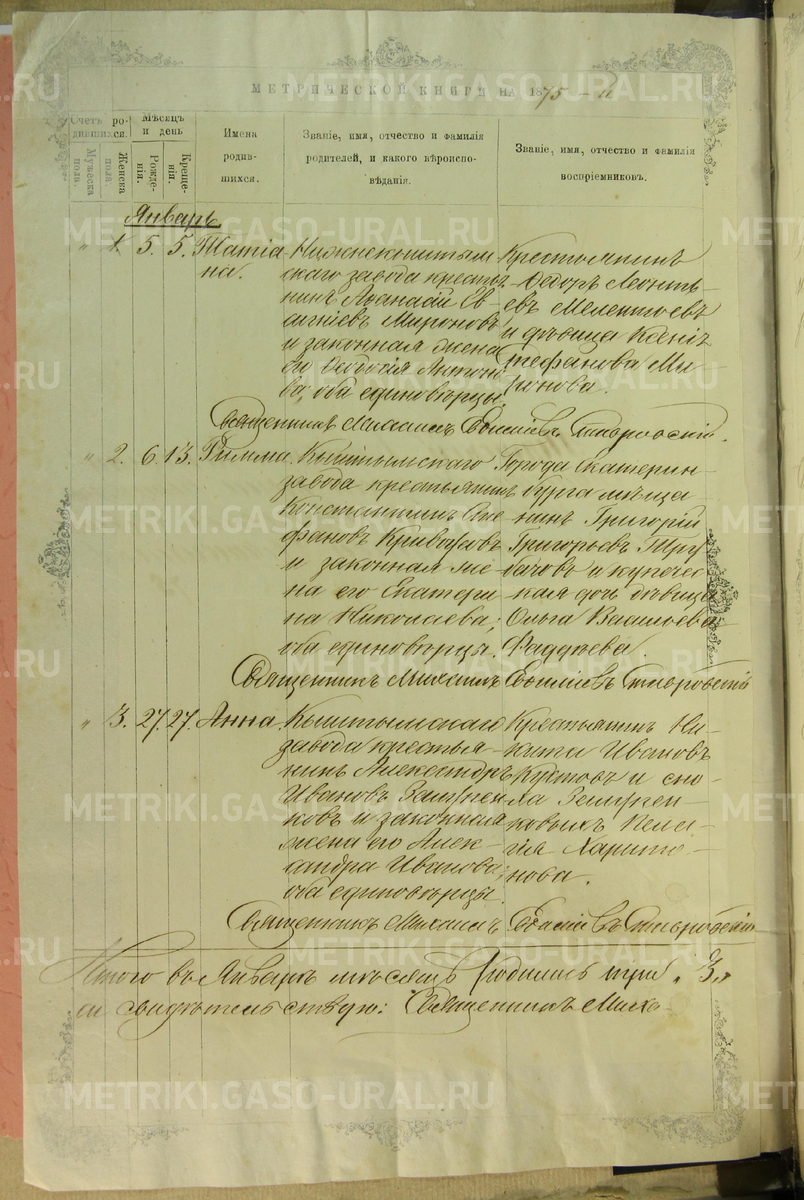 МЕТРИЧЕСКОЙ КНИГИ НА 1875-й
Счетъ родившихся.
Мужеска пола.
Женска пола.
Мѣсяцъ и день
Рожденія.
Крещенія.
Имена родившихся.
Званіе, имя, отчество и фамилія родителей, и какого вѣроисповѣданія.
Званіе, имя, отчество и фамилія воспріемниковъ.
Январь.
" 1. 5. 5. Татіа-
на.
Нижнекыштым
скаго завода крестья-
нинъ Аѳанасій Ев-
Мироновъ
и законная жена
его Ѳеодосія Антоно
ва, оба единовѣрцы.
Крестьянинъ
Ѳедоръ Леонть-
евъ Мелентьевъ
и дѣвица Ксенія
Стефанова Ми-
ронова.
Священникъ Михаилъ
" 2. 6. 13. Римма.
Кыштымскаго
завода крестьянинъ
Константинъ Сте
фановъ
и законная же
на его Екатери
на Николаева;
оба единовѣрцы.
Города Екатерин-
бурга мѣща
нинъ Григорій
Григорьевъ Тру
бачовъ и купечес
кая дочь дѣвица
Ольга Васильева
Фаддѣева.
Священникъ Михаилъ
" 3. 27. 27. Анна.
Кыштымскаго
завода крестья-
нинъ Александръ
Ивановъ
ковъ и законная
жена его Алек-
сандра Иванова;
оба единовѣрцы.
Крестьянинъ Ни-
кита Ивановъ
Кустовъ и
Пела-
гія Харито-
нова.
Священникъ Михаилъ
Итого въ Январѣ мѣсяцѣ родилось три „3„
свидѣтельствую: Священникъ Миха
METRIKI.GASO-URAL.RU